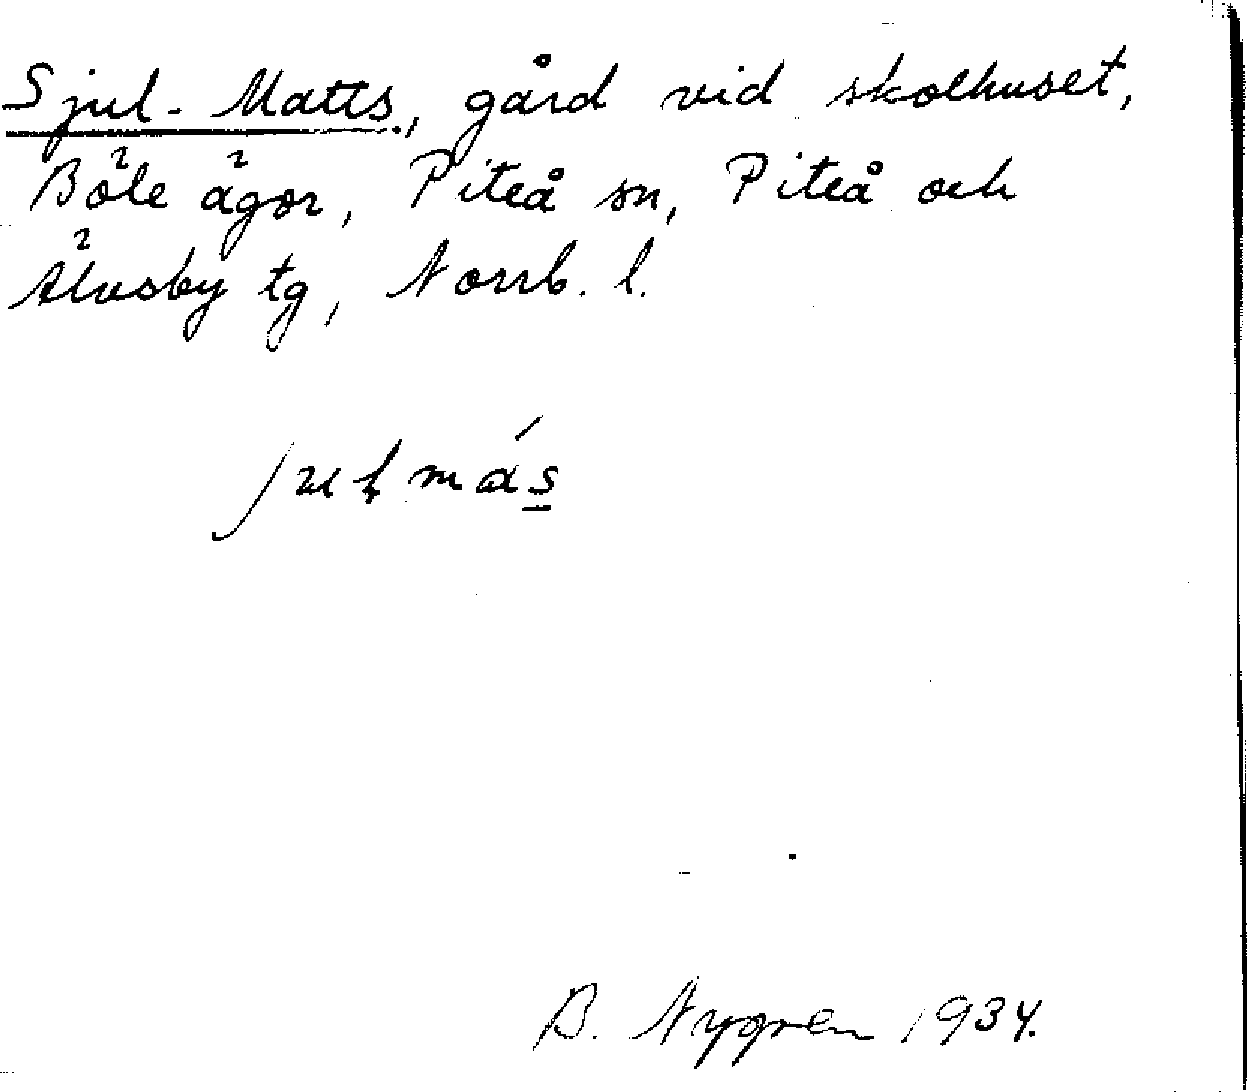 Sjul-Matts., gård vid skolhuset,
Böle ägor, Piteå sn, Piteå och
Älvsby tg, Norrb. l.
B. Nygren 1934.